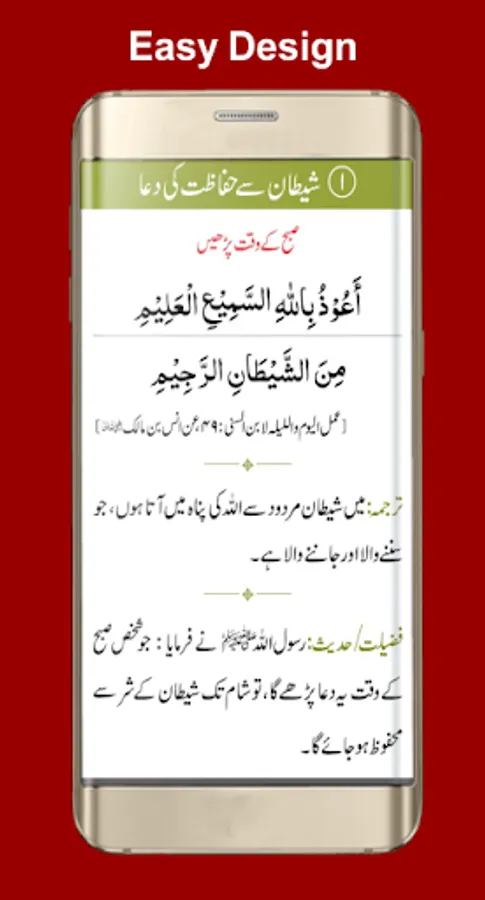 Easy Design
۱ شیطان سے حفاظت کی دعا
صبح کے وقت پڑھیں
أَعُوْذُ بِاللهِ السَّمِيْعِ الْعَلِيْمِ
مِنَ الشَّيْطَانِ الرَّجِيْمِ
[عمل اليوم والليله لابن السنی: ۴۹، عن انس بن مالک ؓ]
ترجمہ: میں شیطان مردود سے اللہ کی پناہ میں آتا ہوں، جو
سننے والا اور جاننے والا ہے۔
فضیلت/حدیث: رسول اللہ ﷺ نے فرمایا: جو شخص صبح
کے وقت یہ دعا پڑھے گا، تو شام تک شیطان کے شر سے
محفوظ ہو جائے گا۔